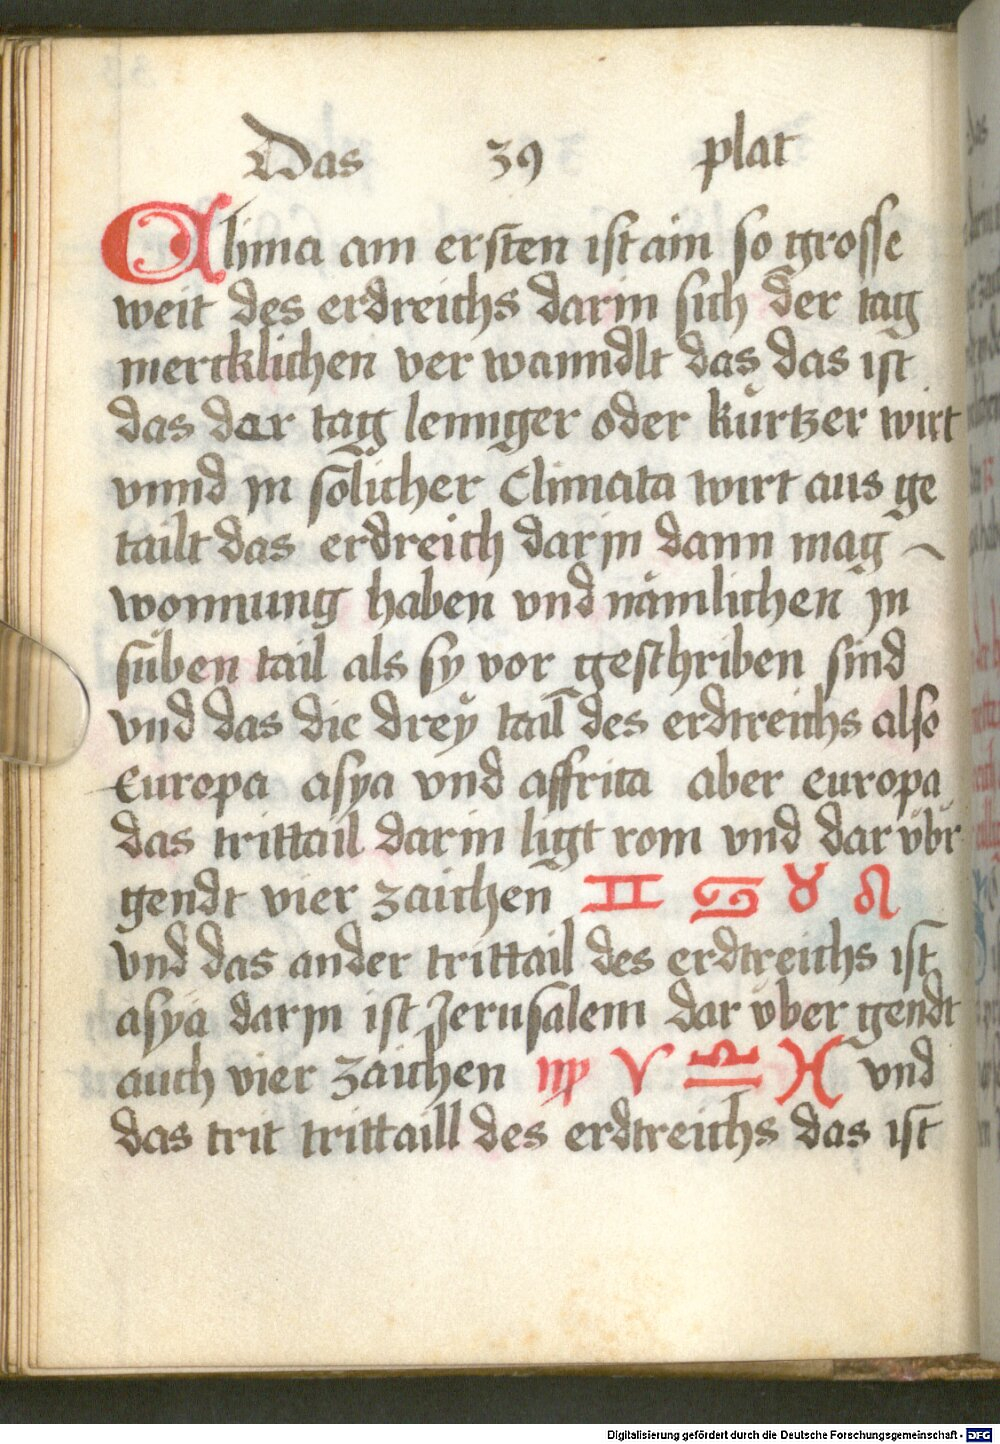 Das 39 plat
Clima am ersten ist ain so grosse
weit des erdreichs darin sich der tag
mercklichen ver wanndlt das das ist
das dar tag lennger oder kürtzer wirt
vnnd jn sölicher Climata wirt aus ge
tailt das erdreich darjn dann mag
wonnung haben vnd nämlichen jn
süben tail als sy vor geschriben sind
vnd das die dreÿ tail des erdtreichs also
Europa asya vnd affrica aber europa
das trittail darin ligt rom vnd dar vbr
gendt vier zaichen ♊ ♋ ♉ ♌
vnd das ander trittail des erdtreichs ist
asÿa darjn ist Jerusalem dar vber gendt
auch vier zaichen ♍ ♈ ♎ ♓ vnd
das trit trittaill des erdtreichs das ist
Digitalisierung gefördert durch die Deutsche Forschungsgemeinschaft - DFG